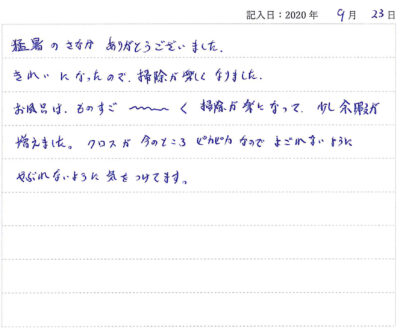 記入日：2020年 9月 23日
猛暑のさなか ありがとうございました。
きれいになったので、掃除が楽しくなりました。
お風呂は、ものすご〜〜〜く 掃除が楽になって、少し余暇が
増えました。クロスが今のところ ピカピカなので よごれないように
やぶれないように気をつけてます。